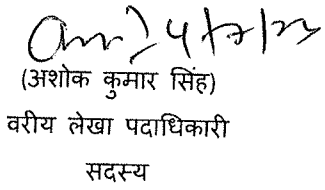 4/7/23
(अशोक कुमार सिंह)
वरीय लेखा पदाधिकारी
सदस्य